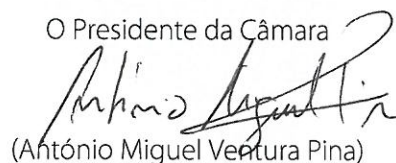 O Presidente da Câmara
António Miguel Pina
(António Miguel Ventura Pina)